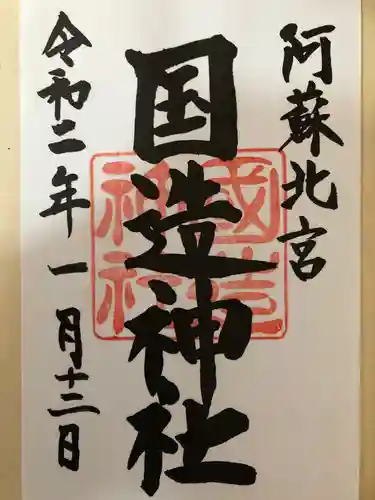 阿蘇北宮
国造神社
國造神社
令和二年一月十二日